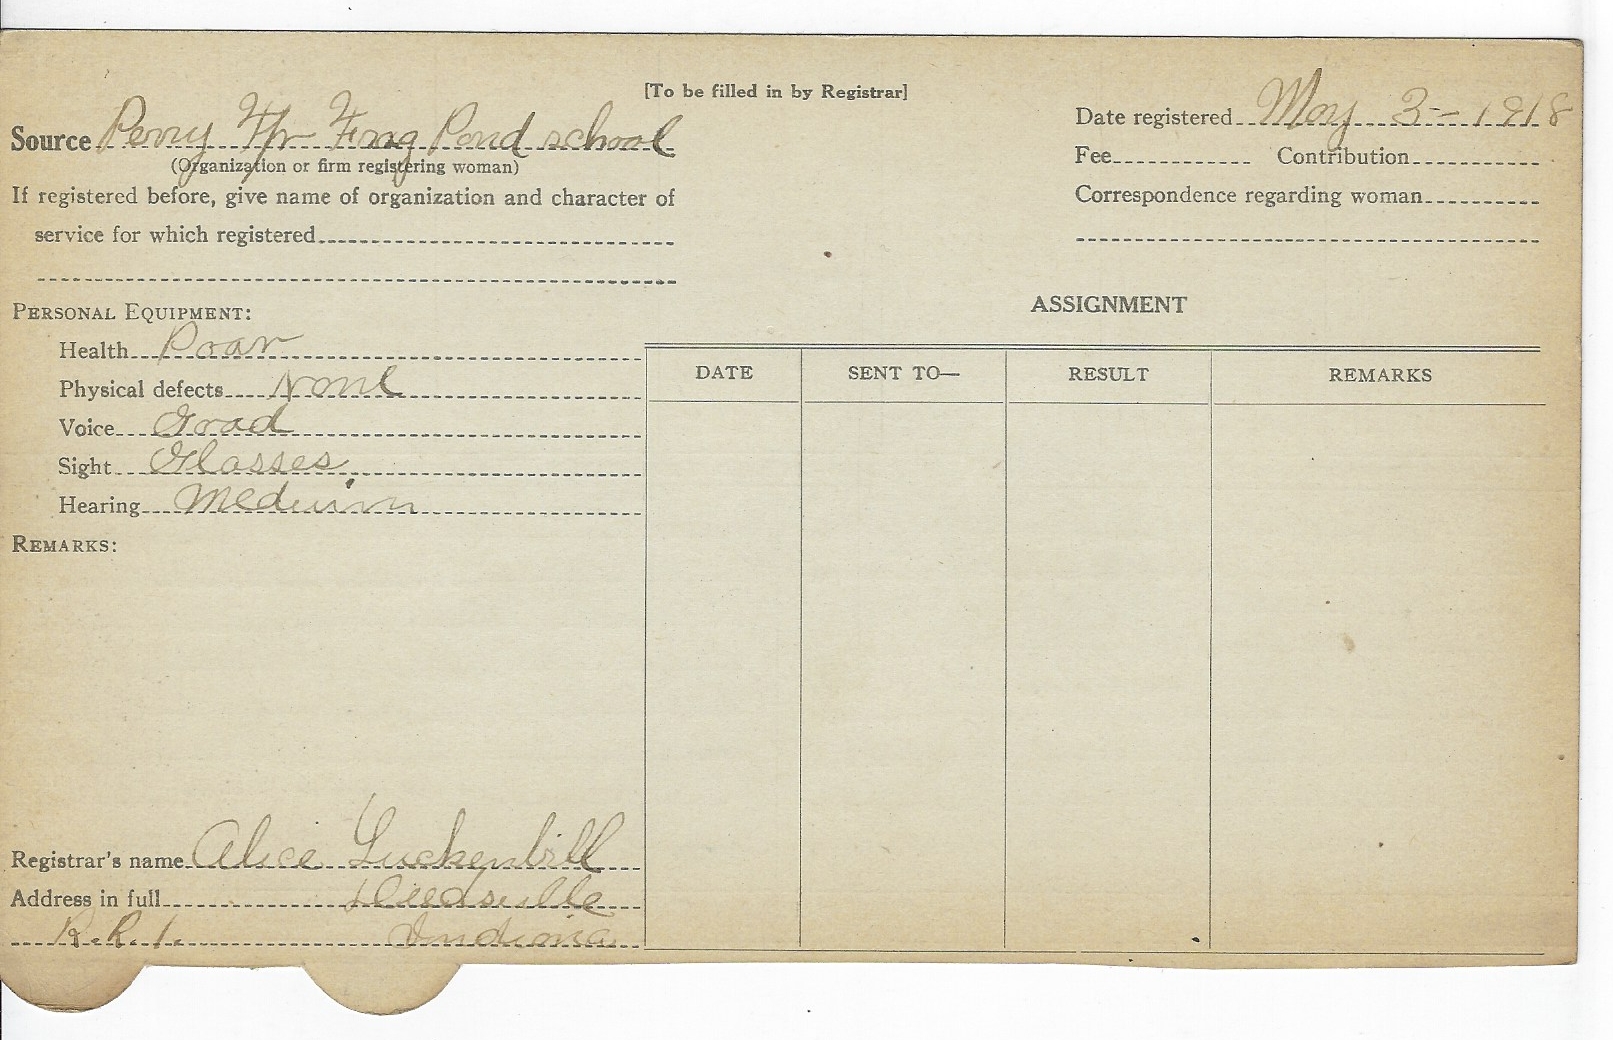 [To be filled in by Registrar]
Source Perry Pond school
(Organization or firm registering woman)
Date registered May 3-1918
Fee Contribution
If registered before, give name of organization and character of
service for which registered
Correspondence regarding woman
PERSONAL EQUIPMENT:
ASSIGNMENT
Health Poor
Physical defects None
Voice Good
Sight Glasses
Hearing Medium
DATE SENT TO— RESULT REMARKS
REMARKS:
Registrar's name Alice Luckenbill
Address in full Deedsville
R.R.1. Indiana